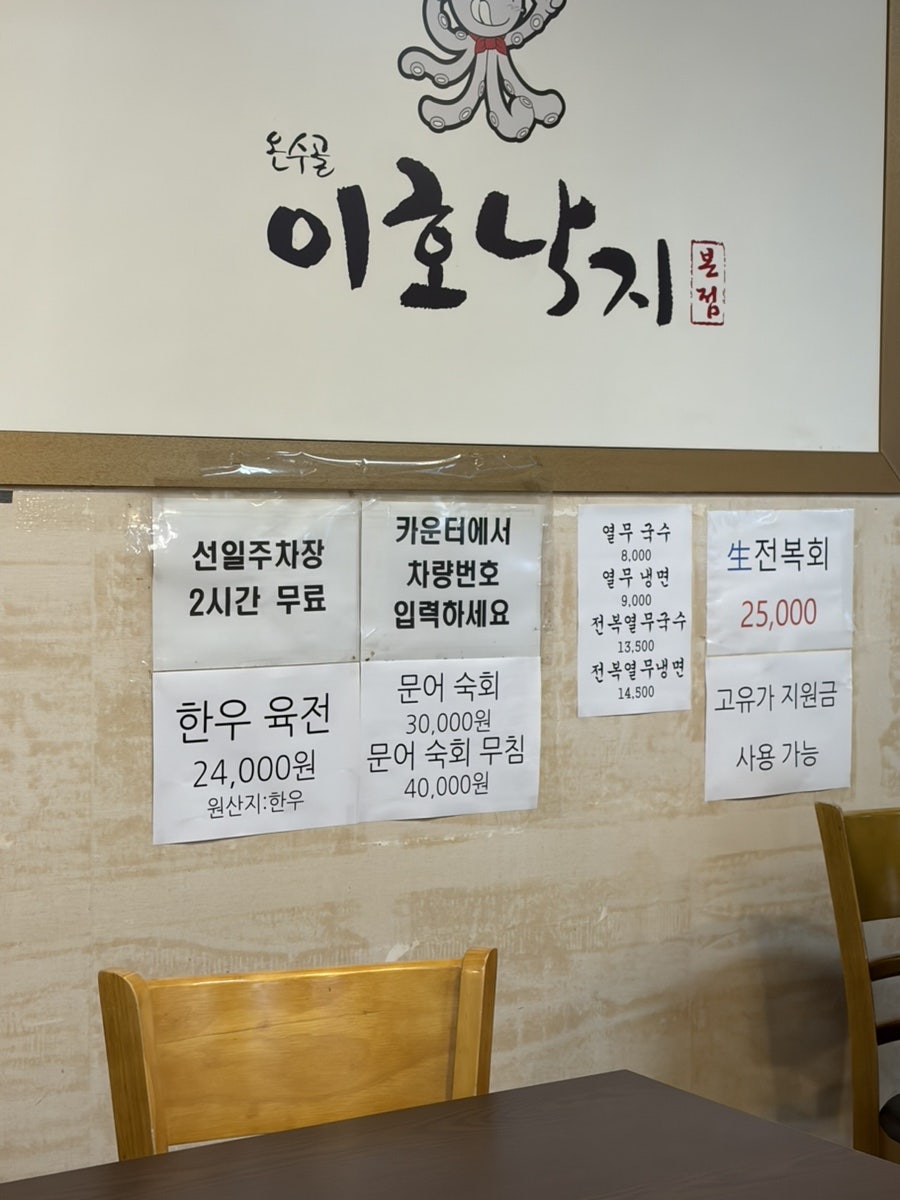 온수골
이호낙지
본점
선일주차장
2시간 무료
카운터에서
차량번호
입력하세요
한우 육전
24,000원
원산지:한우
문어 숙회
30,000원
문어 숙회 무침
40,000원
열무 국수
8,000
열무 냉면
9,000
전복열무국수
13,500
전복열무냉면
14,500
生전복회
25,000
고유가 지원금
사용 가능